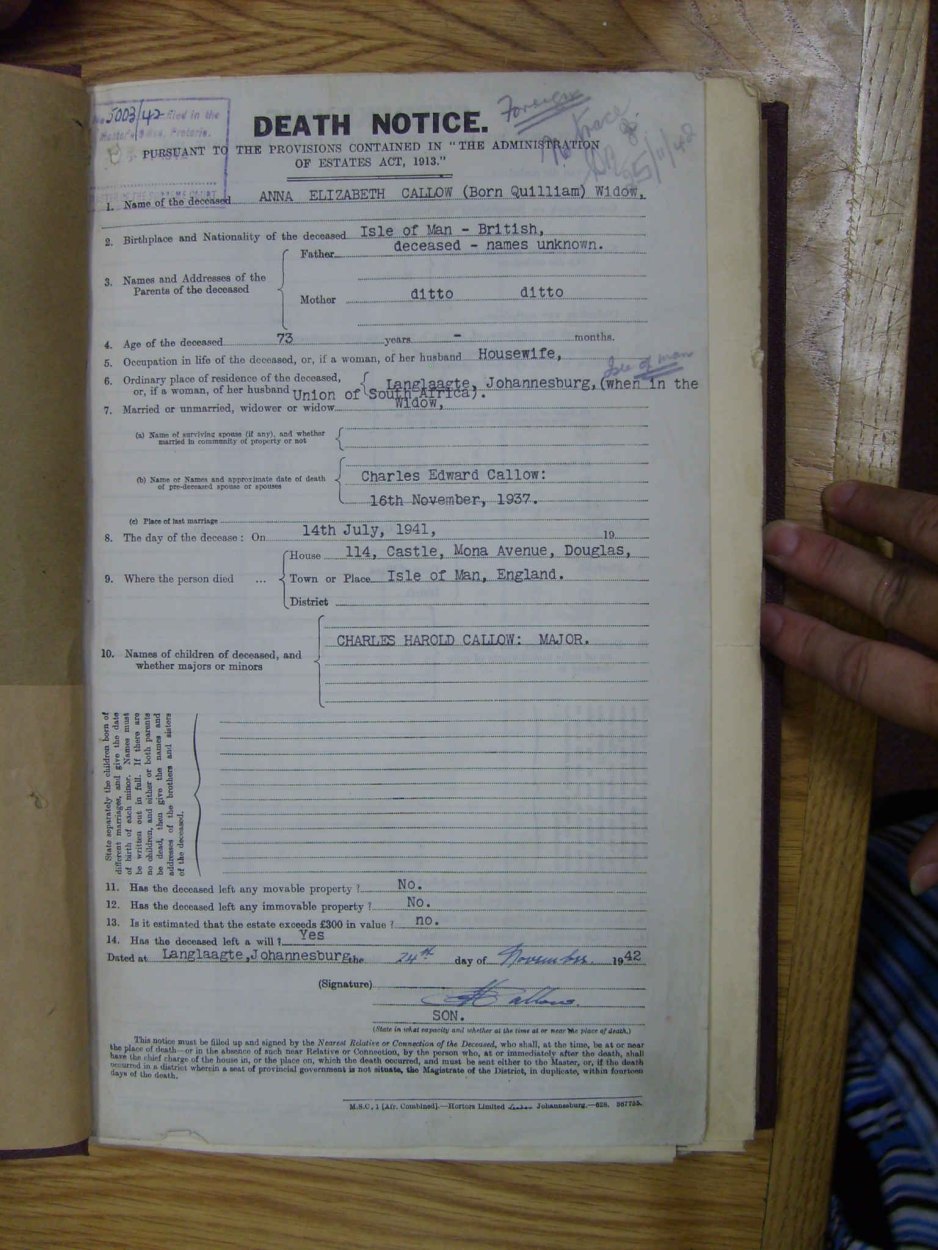 No 5003/42 filed in the
Master's Office, Pretoria.
Foreign
No trace
25/11/42
DEATH NOTICE.
PURSUANT TO THE PROVISIONS CONTAINED IN "THE ADMINISTRATION
OF ESTATES ACT, 1913."
1. Name of the deceased ANNA ELIZABETH CALLOW (Born Quilliam) Widow,
2. Birthplace and Nationality of the deceased Isle of Man - British,
3. Names and Addresses of the Parents of the deceased
Father deceased - names unknown.
Mother ditto ditto
4. Age of the deceased 73 years - months.
5. Occupation in life of the deceased, or, if a woman, of her husband Housewife,
Isle of man
6. Ordinary place of residence of the deceased, or, if a woman, of her husband Langlaagte, Johannesburg, (when in the
Union of South Africa).
7. Married or unmarried, widower or widow Widow,
(a) Name of surviving spouse (if any), and whether
married in community of property or not
(b) Name or Names and approximate date of death
of pre-deceased spouse or spouses
Charles Edward Callow:
16th November, 1937.
(c) Place of last marriage
8. The day of the decease : On 14th July, 1941, 19
9. Where the person died ...
House 114, Castle, Mona Avenue, Douglas,
Town or Place Isle of Man, England.
District
10. Names of children of deceased, and
whether majors or minors
CHARLES HAROLD CALLOW: MAJOR.
State separately the children born of
different marriages, and give the date
of birth of each minor. Names must
be written out in full. If there are
no children, and either or both parents
be dead, then give the names and
addresses of the brothers and sisters
of the deceased.
11. Has the deceased left any movable property ? No.
12. Has the deceased left any immovable property ? No.
13. Is it estimated that the estate exceeds £300 in value ? no.
14. Has the deceased left a will ? Yes
Dated at Langlaagte, Johannesburg the 24th day of November. 1942
(Signature) Callow.
SON.
(State in what capacity and whether at the time at or near the place of death.)
This notice must be filled up and signed by the Nearest Relative or Connection of the Deceased, who shall, at the time, be at or near
the place of death—or in the absence of such near Relative or Connection, by the person who, at or immediately after the death, shall
have the chief charge of the house in, or the place on, which the death occurred, and must be sent either to the Master, or, if the death
occurred in a district wherein a seat of provincial government is not situate, the Magistrate of the District, in duplicate, within fourteen
days of the death.
M.S.C, 1 [Afr. Combined].—Hortors Limited Johannesburg.—628. 567755.